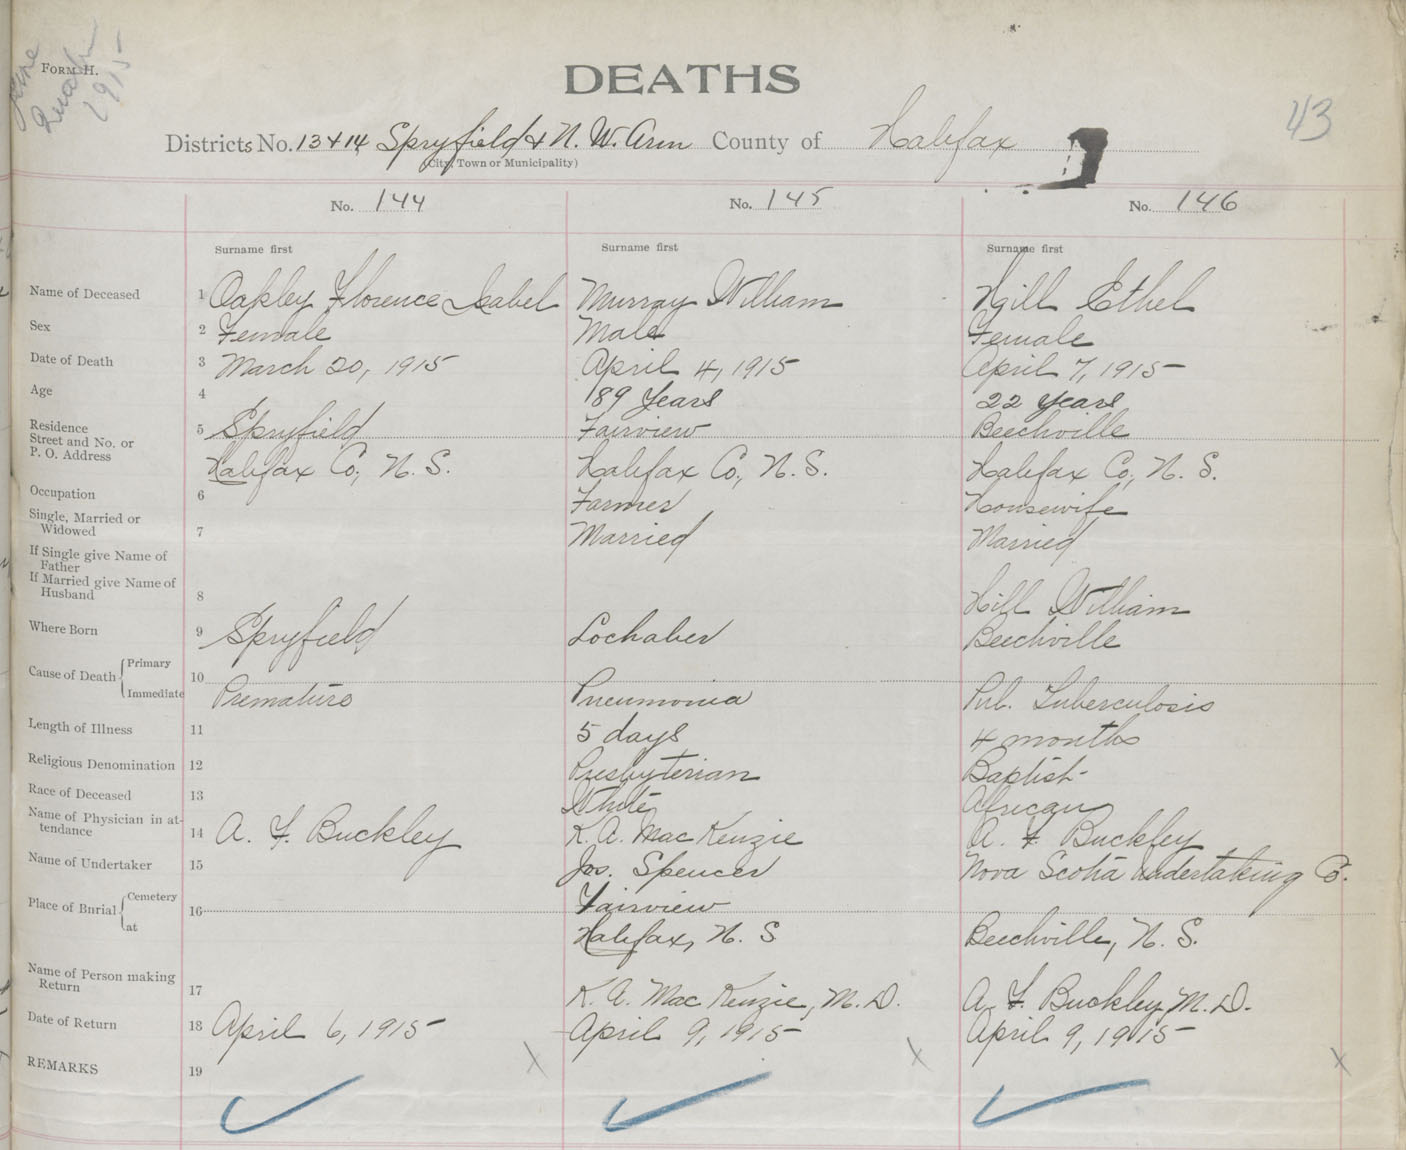 June
Quarter
1915
FORM H.
DEATHS
43
Districts No. 13 + 14 Spryfield + N. W. Arm County of Halifax
(City, Town or Municipality)
No. 144 No. 145 No. 146
Surname first Surname first Surname first
Name of Deceased 1 Oakley Florence Isabel Murray William Hill Ethel
Sex 2 Female Male Female
Date of Death 3 March 20, 1915 April 4, 1915 April 7, 1915
Age 4 89 Years 22 years
Residence
Street and No. or
P. O. Address
5 Spryfield Fairview Beechville
Halifax Co., N. S. Halifax Co., N. S. Halifax Co., N. S.
Occupation 6 Farmer Housewife
Single, Married or
Widowed 7 Married Married
If Single give Name of
Father
If Married give Name of
Husband 8 Hill William
Where Born 9 Spryfield Lochaber Beechville
Cause of Death Primary
Immediate 10 Premature Pneumonia Pul. Tuberculosis
Length of Illness 11 5 days 4 months
Religious Denomination 12 Presbyterian Baptist
Race of Deceased 13 White African
Name of Physician in at-
tendance 14 A. F. Buckley K. A. Mac Kenzie A. F. Buckley
Name of Undertaker 15 Jos. Spencer Nova Scotia Undertaking Co.
Place of Burial Cemetery 16 Fairview
at Halifax, N. S. Beechville, N. S.
Name of Person making
Return 17 K. A. Mac Kenzie, M. D. A. F. Buckley, M. D.
Date of Return 18 April 6, 1915 April 9, 1915 April 9, 1915
REMARKS 19